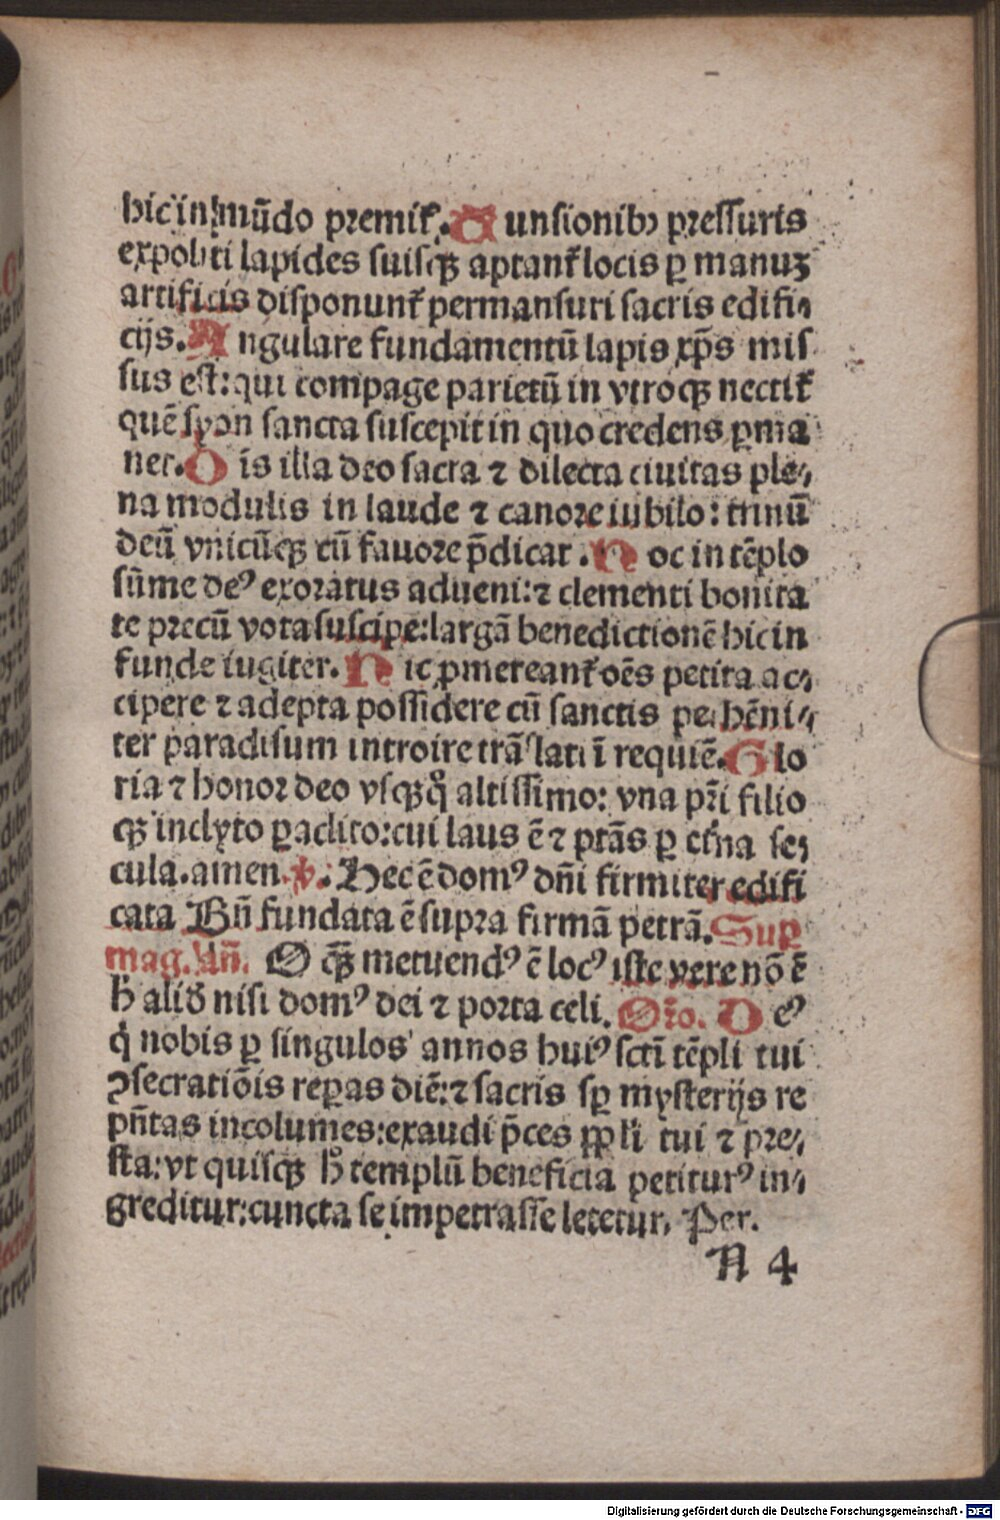 hic in mūdo premit᷑. Tunsionibꝰ pressuris
expoliti lapides suisqꝫ aptant᷑ locis ꝑ manuꝫ
artificis disponunt᷑ permansuri sacris edifi⸗
cijs. Angulare fundamentū lapis xp̄s mis
sus est: qui compage parietū in vtroqꝫ nectit᷑
quē syon sancta suscepit in quo credens ꝑma
net. Oīs illa deo sacra ⁊ dilecta ciuitas ple⸗
na modulis in laude ⁊ canore iubilo: trinū
deū vnicūqꝫ cū fauore p̄dicat. Hoc in tēplo
sūme deꝰ exoratus adueni: ⁊ clementi bonita
te precū vota suscipe: largā benedictionē hic in
funde iugiter. Hic ꝓmereant᷑ oēs petita ac⸗
cipere ⁊ adepta possidere cū sanctis perhēni⸗
ter paradisum introire trāslati ī requiē. Glo
ria ⁊ honor deo vsqꝫq̊ altissimo: vna pr̄i filio
qꝫ inclyto ꝑaclito: cui laus ē ⁊ ptās ꝑ et᷑na se⸗
cula. amen. ꝟ. Hec ē domꝰ dn̄i firmiter edifi
cata Bn̄ fundata ē supra firmā petrā. Suꝑ
mag. An̄. O qꝫ̄ metuendꝰ ē locꝰ iste vere nō ē
h̄ aliđ nisi domꝰ dei ⁊ porta celi. Or̄o. Deꝰ
q̇ nobis ꝑ singulos annos huiꝰ sctī tēpli tui
ꝯsecratiōis reꝑas diē: ⁊ sacris sꝑ mysterijs re
pn̄tas incolumes: exaudi p̄ces ꝓpl̄i tui ⁊ pre⸗
sta: vt quisqꝫ h̄ templū beneficia petiturꝰ in⸗
greditur: cuncta se impetrasse letetur. Per.
A 4
Digitalisierung gefördert durch die Deutsche Forschungsgemeinschaft - DFG